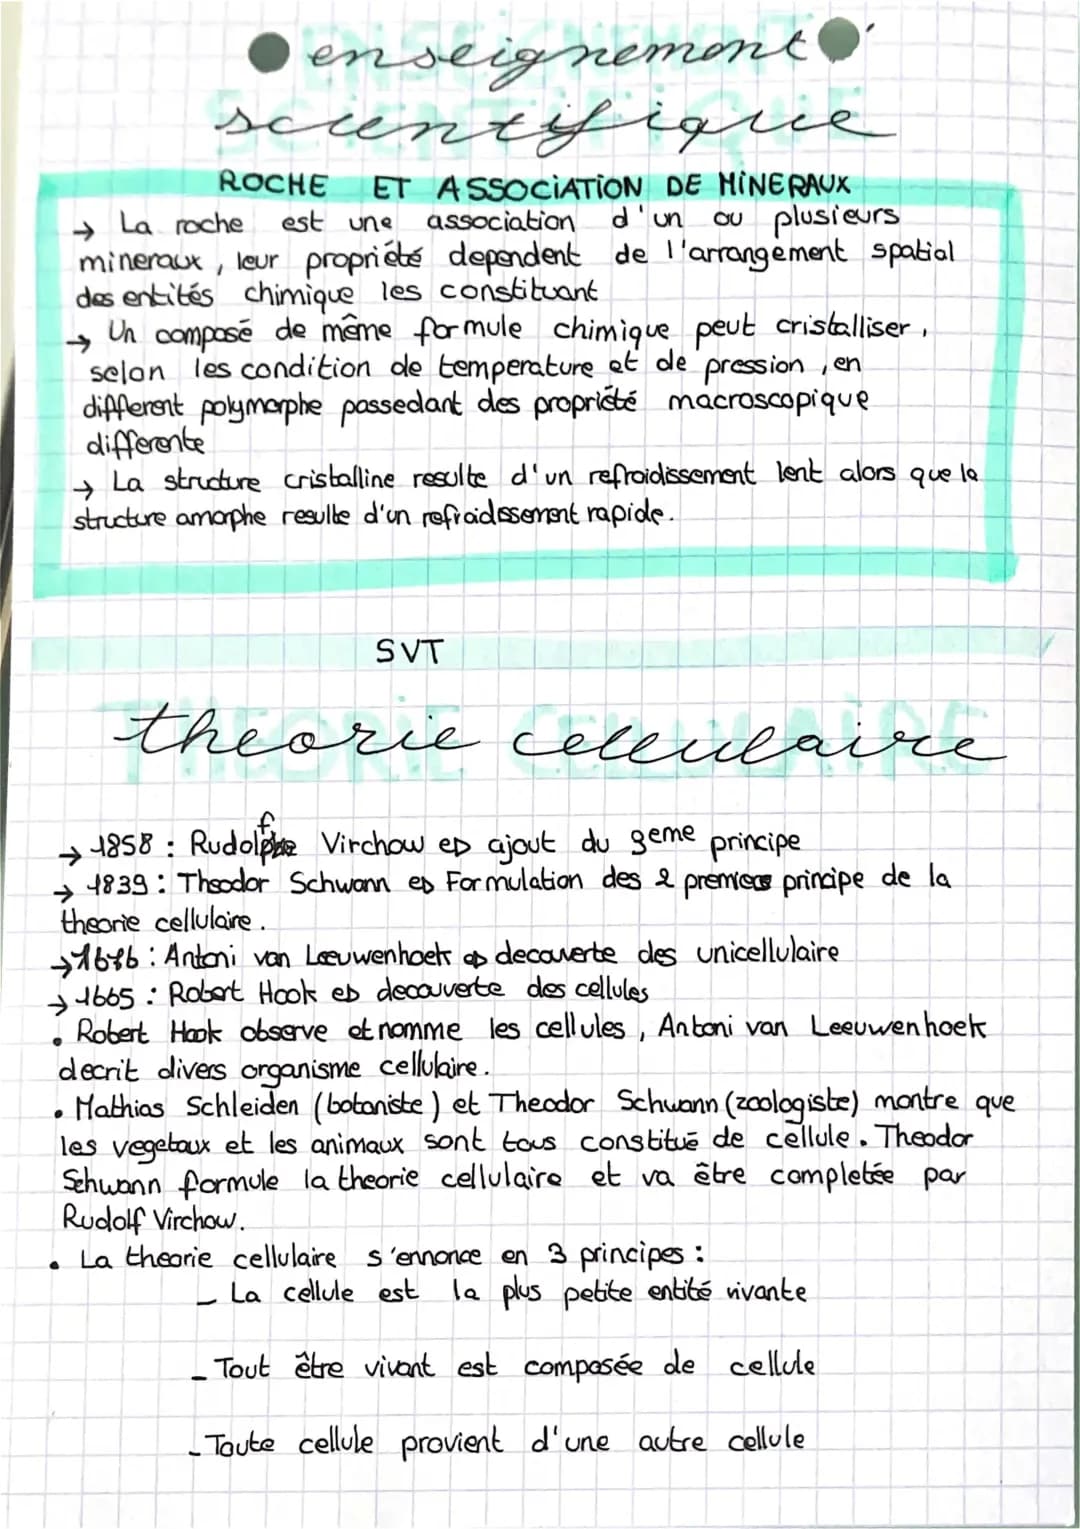 enseignement
scientifique
ROCHE ET ASSOCIATION DE MINERAUX
→ La roche est une association d'un ou plusieurs
mineraux, leur propriété dependent de l'arrangement spatial
des entités chimique les constituant
→ Un composé de même formule chimique peut cristalliser,
selon les condition de temperature et de pression, en
different polymorphe possedant des propriété macroscopique
differente
→ La structure cristalline resulte d'un refroidissement lent alors que la
structure amorphe resulte d'un refroidissement rapide.
SVT
theorie cellulaire
→ 1858 : Rudolf Virchow => ajout du 3eme principe
→ 1839 : Theodor Schwann => Formulation des 2 premiers principe de la
theorie cellulaire.
→ : Antoni van Leeuwenhoek => decouverte des unicellulaire
→ 1665 : Robert Hook => decouverte des cellules
• Robert Hook observe et nomme les cellules, Antoni van Leeuwenhoek
decrit divers organisme cellulaire.
• Mathias Schleiden (botaniste) et Theodor Schwann (zoologiste) montre que
les vegetaux et les animaux sont tous constitué de cellule. Theodor
Schwann formule la theorie cellulaire et va être completée par
Rudolf Virchow.
• La theorie cellulaire s'ennonce en 3 principes :
- La cellule est la plus petite entité vivante
- Tout être vivant est composée de cellule
- Toute cellule provient d'une autre cellule